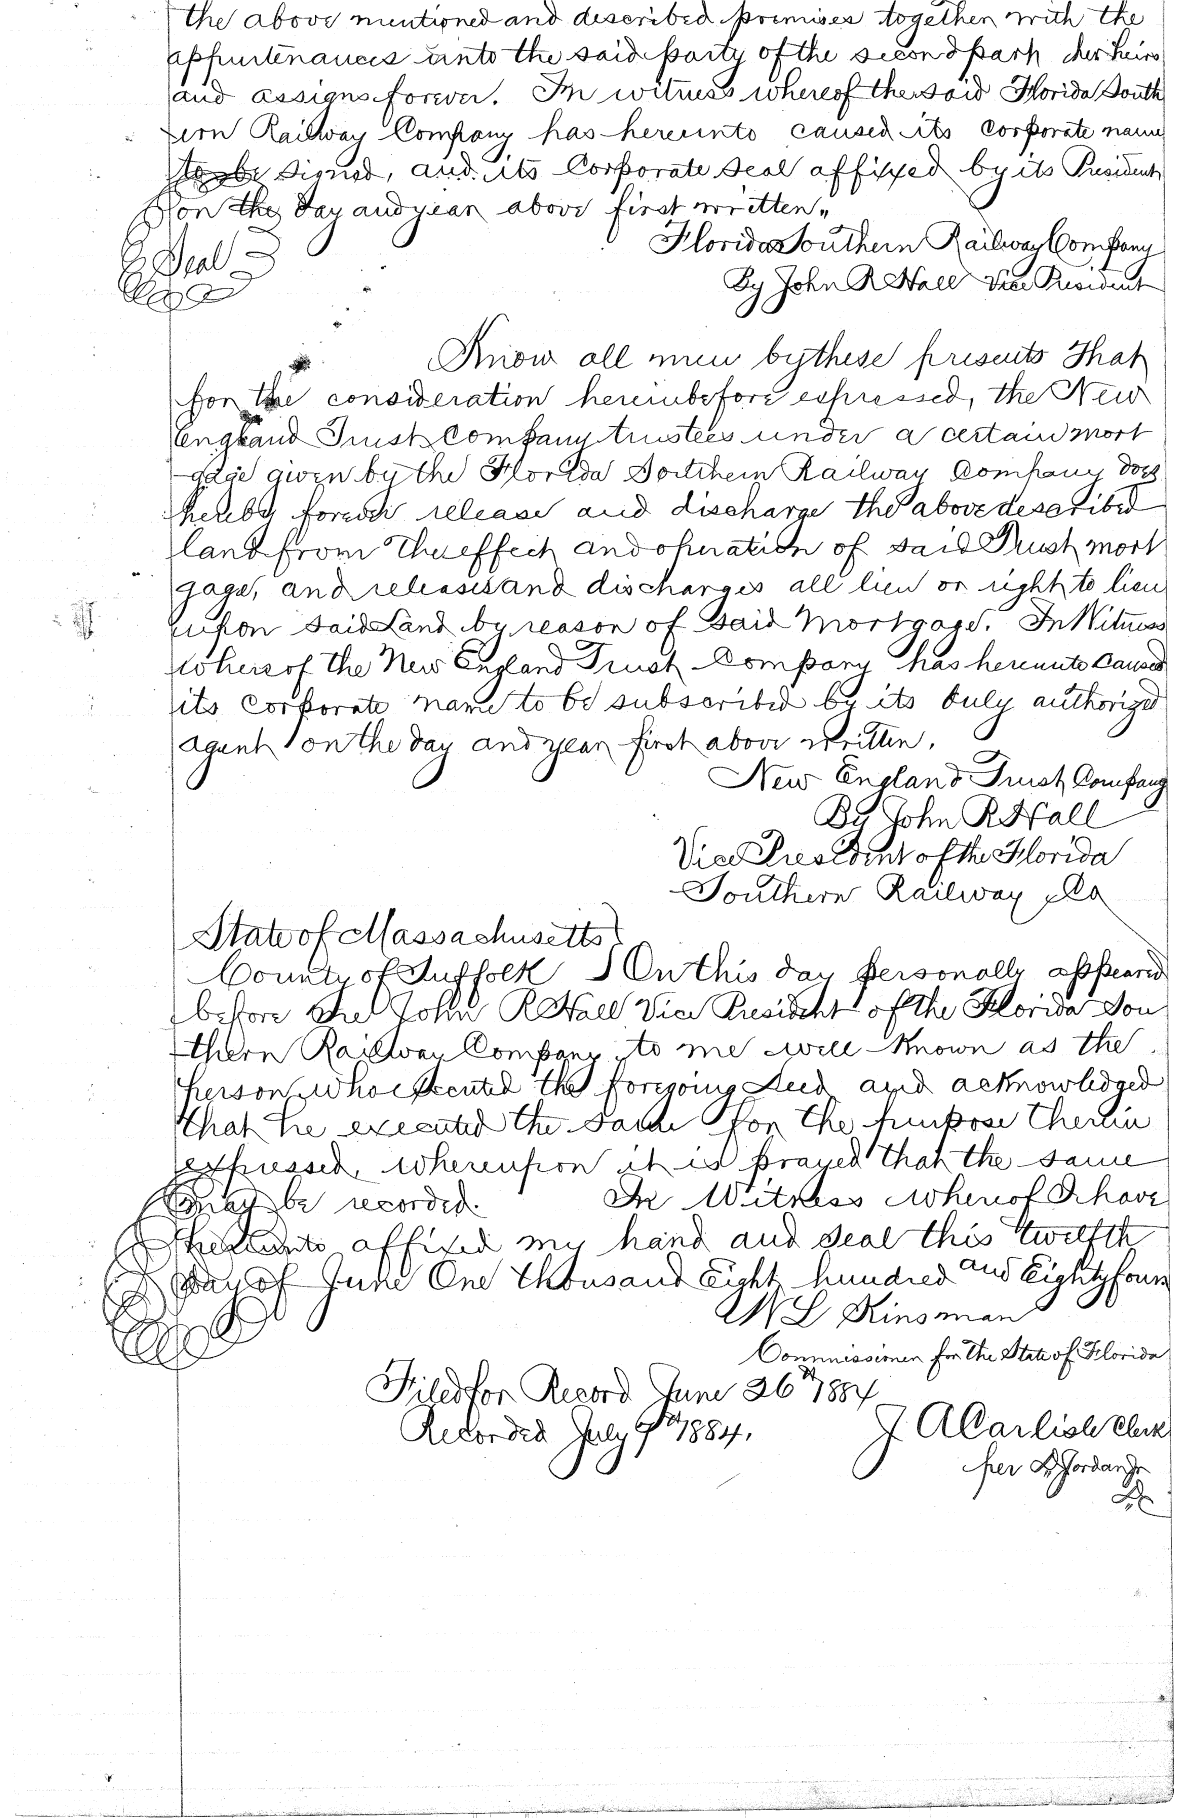 the above mentioned and described premises together with the
appurtenances unto the said party of the second part her heirs
and assigns forever. In witness whereof the said Florida South
ern Railway Company has hereunto caused its corporate name
to be signed, and its Corporate seal affixed by its President
on the day and year above first written.
Seal
Florida Southern Railway Company
By John R Hall Vice President
Know all men by these presents That
for the consideration hereinbefore expressed, the New
England Trust Company trustees under a certain mort
gage given by the Florida Southern Railway Company does
hereby forever release and discharge the above described
land from the effect and operation of said Trust mort
gage, and releases and discharges all lien or right to lien
upon said Land by reason of said Mortgage. In Witness
whereof the New England Trust Company has hereunto caused
its corporate name to be subscribed by its duly authorized
agent on the day and year first above written.
New England Trust Company
By John R Hall
Vice President of the Florida
Southern Railway Co
State of Massachusetts
County of Suffolk } On this day personally appeared
before me John R Hall Vice President of the Florida Sou
thern Railway Company to me well known as the
person who executed the foregoing deed and acknowledged
that he executed the same for the purpose therein
expressed, whereupon it is prayed that the same
may be recorded. In Witness whereof I have
hereunto affixed my hand and seal this twelfth
day of June One thousand Eight hundred and Eighty four
W L Kinsman
Commissioner for the State of Florida
Filed for Record June 26th 1884
Recorded July 7th 1884.
J A Carlisle Clerk
per D. Jordan Jr
DC